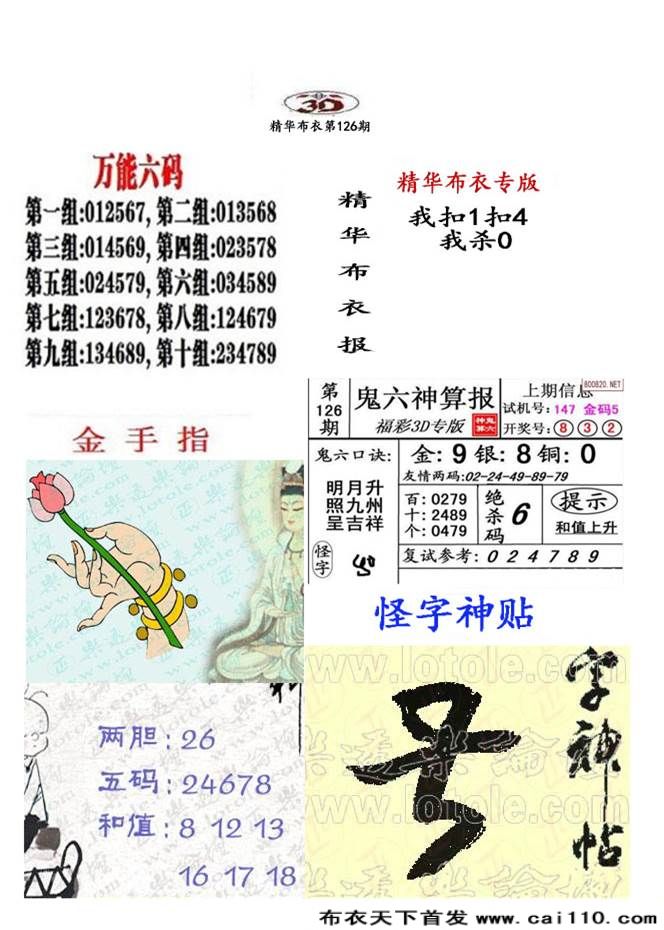 3D
精华布衣第126期
万能六码
第一组:012567, 第二组:013568
第三组:014569, 第四组:023578
第五组:024579, 第六组:034589
第七组:123678, 第八组:124679
第九组:134689, 第十组:234789
精华布衣报
精华布衣专版
我扣1扣4
我杀0
第126期
鬼六神算报
福彩3D专版
上期信息
800820.NET
试机号: 147 金码5
开奖号: 8 3 2
鬼六口诀:
金: 9 银: 8 铜: 0
友情两码:02-24-49-89-79
明月升
照九州
呈吉祥
百: 0279
十: 2489
个: 0479
绝杀码 6
提示
和值上升
怪字
复试参考: 0 2 4 7 8 9
金手指
怪字神贴
www.lotole.com
字神帖
两胆: 26
五码: 24678
和值: 8 12 13
16 17 18
布衣天下首发 www.cai110.com